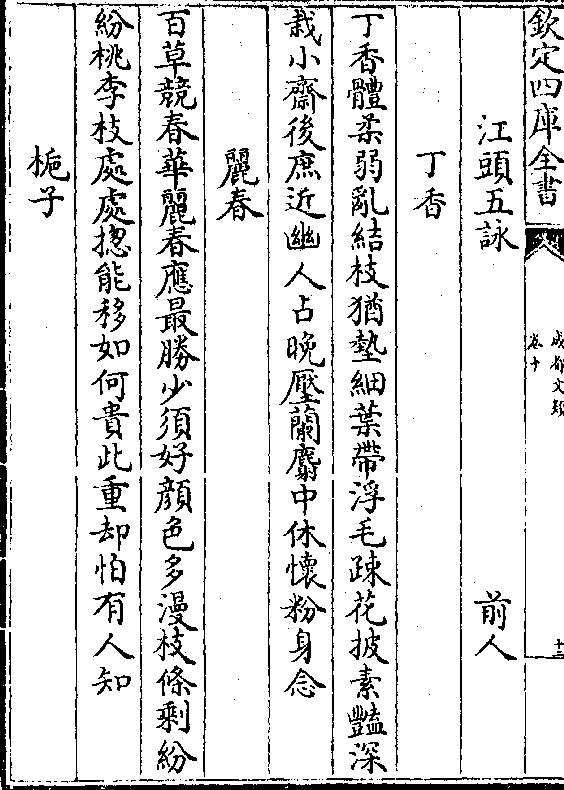 欽定四庫全書
成都文類
卷十
十三
江頭五詠
前人
丁香
丁香體柔弱亂結枝猶墊細葉帶浮毛疎花披素豔深
栽小齋後庶近幽人占晚墮蘭麝中休懷粉身念
麗春
百草競春華麗春應最勝少須好顏色多漫枝條剩紛
紛桃李枝處處揔能移如何貴此重却怕有人知
梔子